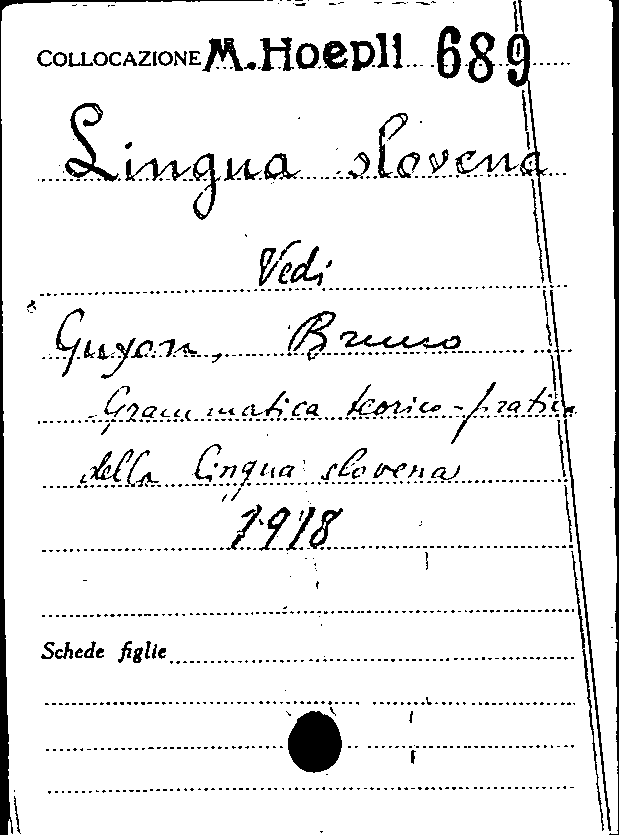 COLLOCAZIONE M. Hoepli 689
Lingua slovena
Vedi
Guyon, Bruno
Grammatica teorico-pratica
della lingua slovena
1918
Schede figlie